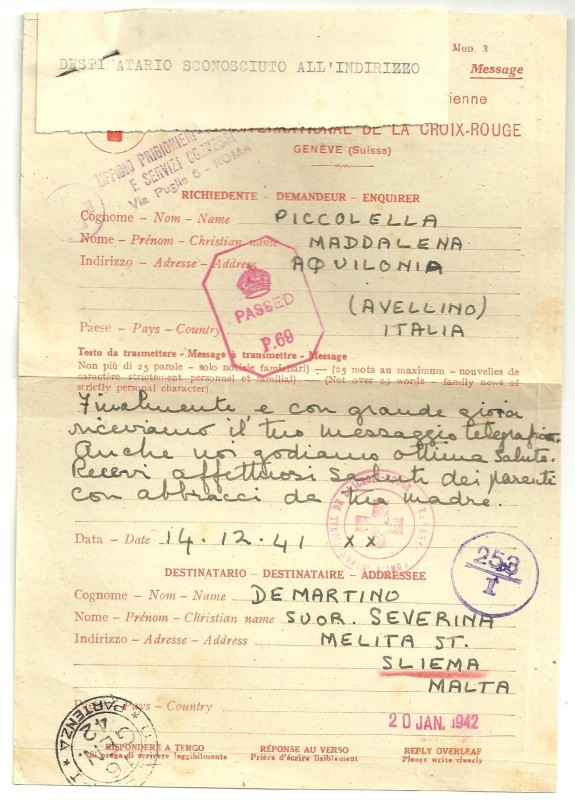 MOD. 3
DESTINATARIO SCONOSCIUTO ALL'INDIRIZZO
Message
INTERNATIONAL DE LA CROIX-ROUGE
GENÈVE (Suisse)
UFFICIO PRIGIONIERI
E SERVIZI
Via Puglie 6 - ROMA
RICHIEDENTE - DEMANDEUR - ENQUIRER
Cognome - Nom - Name PICCOLELLA
Nome - Prénom - Christian name MADDALENA
Indirizzo - Adresse - Address AQUILONIA
(AVELLINO)
Paese - Pays - Country ITALIA
PASSED
P.69
Testo da trasmettere - Message à transmettre - Message
Non più di 25 parole - solo notizie famigliari) — (25 mots au maximum - nouvelles de
caractère strictement personnel et familial) - (Not over 25 words - family news of
strictly personal character).
Finalmente, e con grande gioia
riceviamo il tuo messaggio telegrafico.
Anche noi godiamo ottima salute.
Ricevi affettuosi saluti dei parenti
con abbracci da tua madre.
Data - Date 14.12.41 XX
253
I
DESTINATARIO - DESTINATAIRE - ADDRESSEE
Cognome - Nom - Name DEMARTINO
Nome - Prénom - Christian name SUOR. SEVERINA
Indirizzo - Adresse - Address MELITA ST.
SLIEMA
MALTA
Pays - Country
20 JAN. 1942
PARTENZA
RISPONDERE A TERGO RÉPONSE AU VERSO REPLY OVERLEAF
Si prega di scrivere leggibilmente Prière d'écrire lisiblement Please write clearly